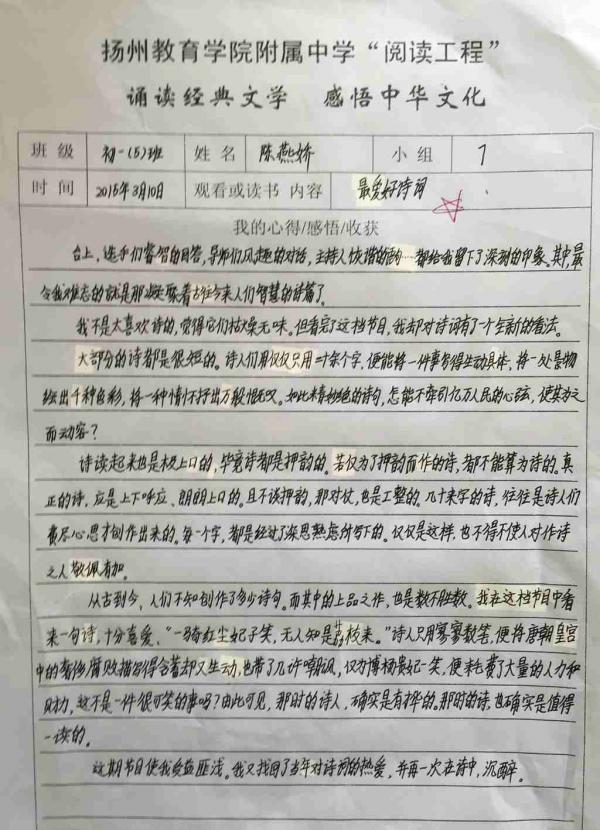 扬州教育学院附属中学“阅读工程”
诵读经典文学 感悟中华文化
班 级 初一(5)班 姓 名 陈燕娇 小 组 7
时 间 2015年3月10日 观看或读书 内容 最爱好诗词
我的心得/感悟/收获
台上,选手们睿智的回答,导师们风趣的对话,主持人诙谐的 … 都给我留下了深刻的印象。其中,最
令我难忘的就是那凝聚着古往今来人们智慧的诗篇了。
我不是太喜欢诗的,觉得它们枯燥无味。但看完了这档节目,我却对诗词有了一个全新的看法。
大部分的诗都是很短的。诗人们用仅仅只用二十余个字,便能将一件事写得生动具体,将一处景物
绘出千种色彩,将一种情怀抒出万般慨叹。如此来看妙绝的诗句,怎能不牵引亿万人民的心弦,使其为之
而动容?
诗读起来也是极上口的,毕竟诗都是押韵的。若仅为了押韵而作的诗,都不能算为诗的。真
正的诗,应是上下呼应、朗朗上口的。且不谈押韵,那对仗,也是工整的。几十来字的诗,往往是诗人们
费尽心思才创作出来的。每一个字,都是经过了深思熟虑所写下的。仅仅是这样,也不得不使人对作诗
之人敬佩有加。
从古到今,人们不知创作了多少诗句。而其中的上品之作,也是数不胜数。我在这档节目中看
来一句诗,十分喜爱、“一骑红尘妃子笑,无人知是荔枝来。”诗人只用寥寥数笔,便将唐朝皇宫
中的奢侈腐败描写得含蓄却又生动,也带了几许嘲讽,仅为博杨贵妃一笑,便耗费了大量的人力和
财力,这不是一件很可笑的事吗?由此可见,那时的诗人,确实是有才华的。那时的诗,也确实是值得
一读的。
这期节目使我受益匪浅。我又找回了当年对诗词的热爱,并再一次在诗中,沉醉。